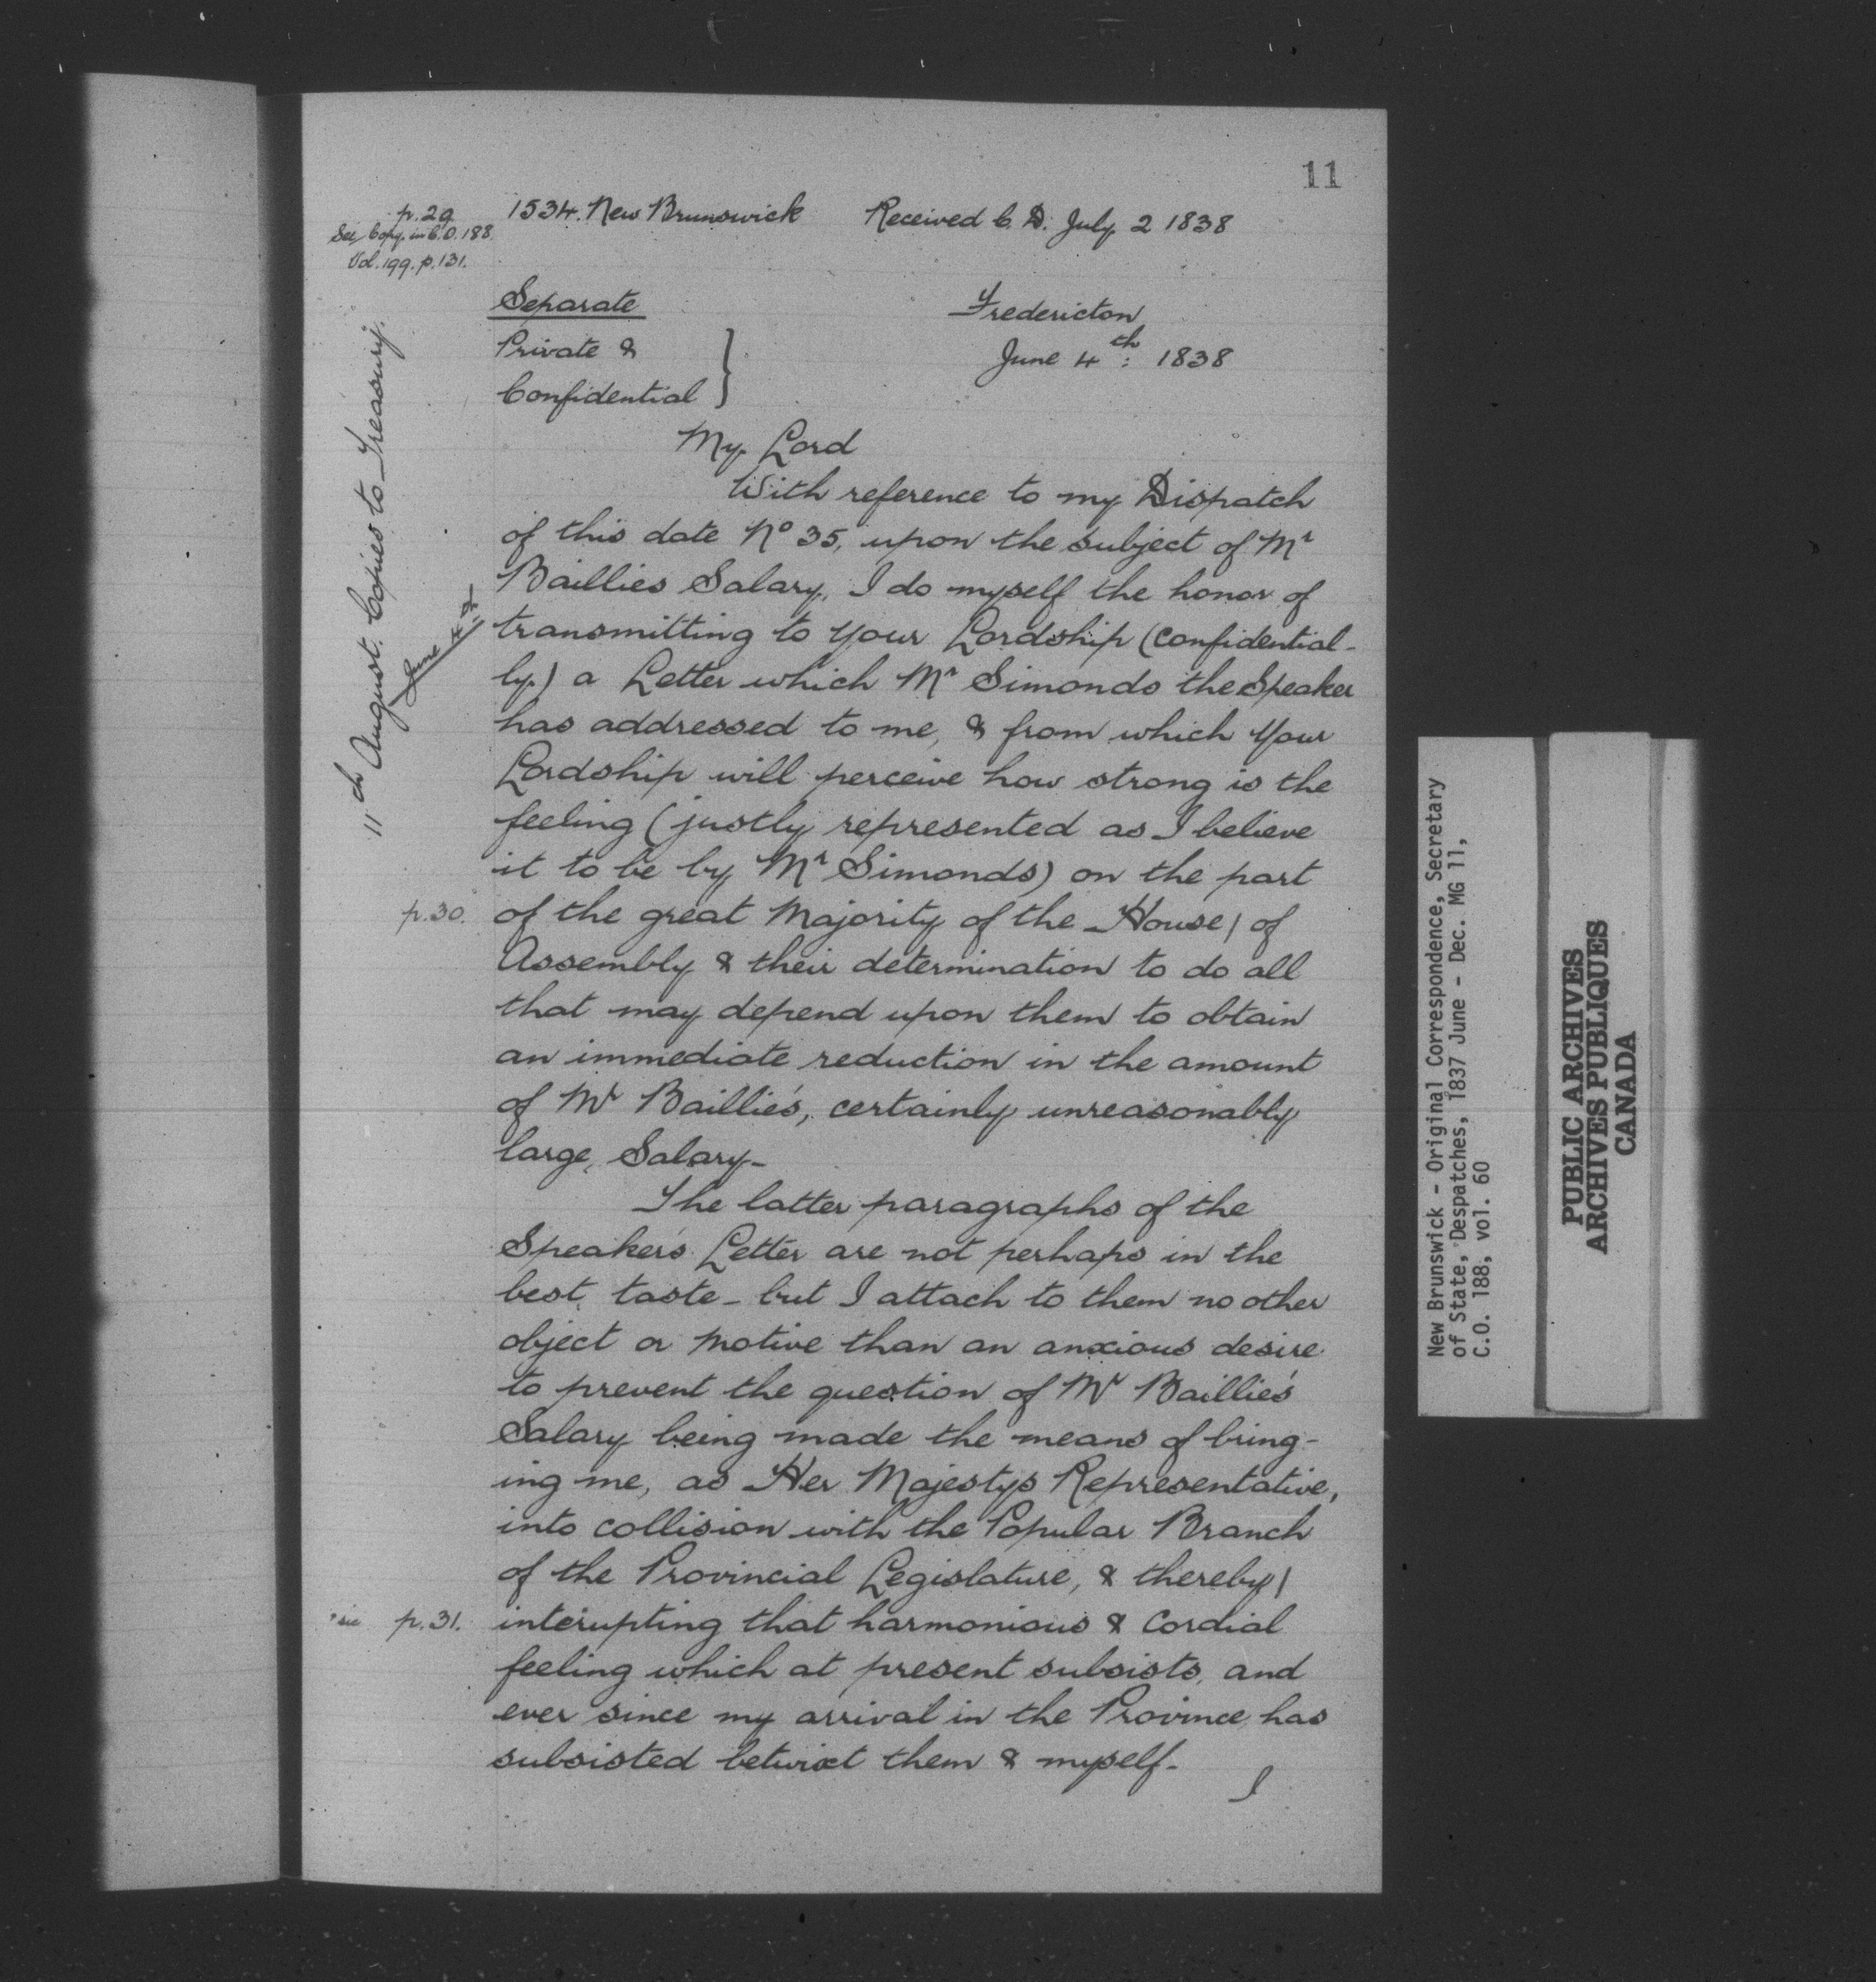 11
p. 29
See Copy in C.O. 188.
Vol. 199. p. 131.
1534. New Brunswick Received C. D. July 2 1838
Separate
Private &
Confidential
Fredericton
June 4th: 1838
11th August. Copies to Treasury.
My Lord
With reference to my Dispatch
of this date No 35, upon the subject of Mr
Baillies Salary, I do myself the honor of
transmitting to Your Lordship (confidential-
ly) a Letter which Mr Simonds the Speaker
has addressed to me, & from which Your
Lordship will perceive how strong is the
feeling (justly represented as I believe
it to be by Mr Simonds) on the part
p. 30. of the great Majority of the House / of
Assembly & their determination to do all
that may depend upon them to obtain
an immediate reduction in the amount
of Mr Baillie's, certainly unreasonably
large, Salary-
The latter paragraphs of the
Speaker's Letter are not perhaps in the
best taste - but I attach to them no other
object or motive than an anxious desire
to prevent the question of Mr Baillie's
Salary being made the means of bring-
ing me, as Her Majestys Representative,
into collision with the Popular Branch
of the Provincial Legislature, & thereby /
sic p. 31. interupting that harmonious & cordial
feeling which at present subsists, and
ever since my arrival in the Province has
subsisted betwixt them & myself-
I
New Brunswick - Original Correspondence, Secretary
of State, Despatches, 1837 June - Dec. MG 11,
C.O. 188, vol. 60
PUBLIC ARCHIVES
ARCHIVES PUBLIQUES
CANADA